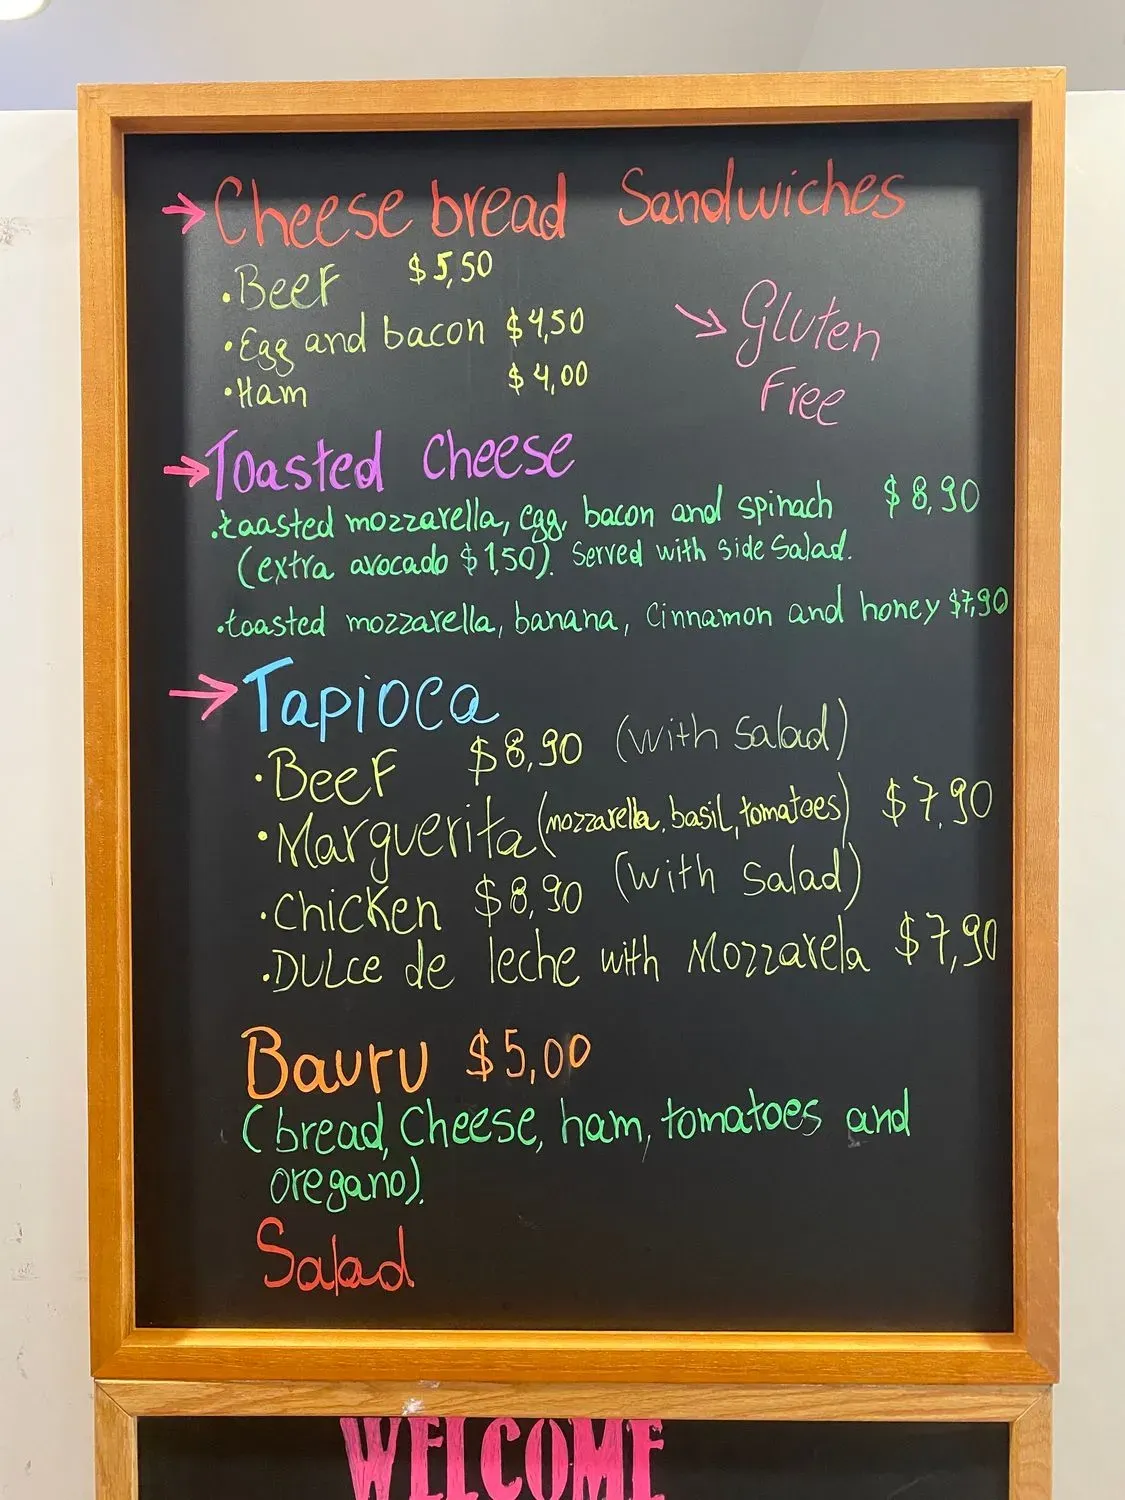 → Cheese bread Sandwiches
• Beef $5,50
• Egg and bacon $4,50
• Ham $4,00
→ Gluten
Free
→ Toasted Cheese
• taasted mozzarella, egg, bacon and spinach $8,90
(extra avocado $1,50). Served with side Salad.
• toasted mozzarella, banana, Cinnamon and honey $7,90
→ Tapioca
• Beef $8,90 (with Salad)
• Marguerita (mozzarella, basil, tomatoes) $7,90
• Chicken $8,90 (with Salad)
• DULCE de leche with Mozzarela $7,90
Bauru $5,00
(bread, Cheese, ham, tomatoes and
oregano).
Salad
WELCOME